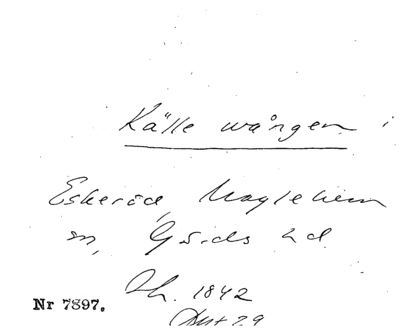 Källe wången i
Eskeröd, Maglehem
sn, Gärds hd.
Sk. 1842
Nr 7897.